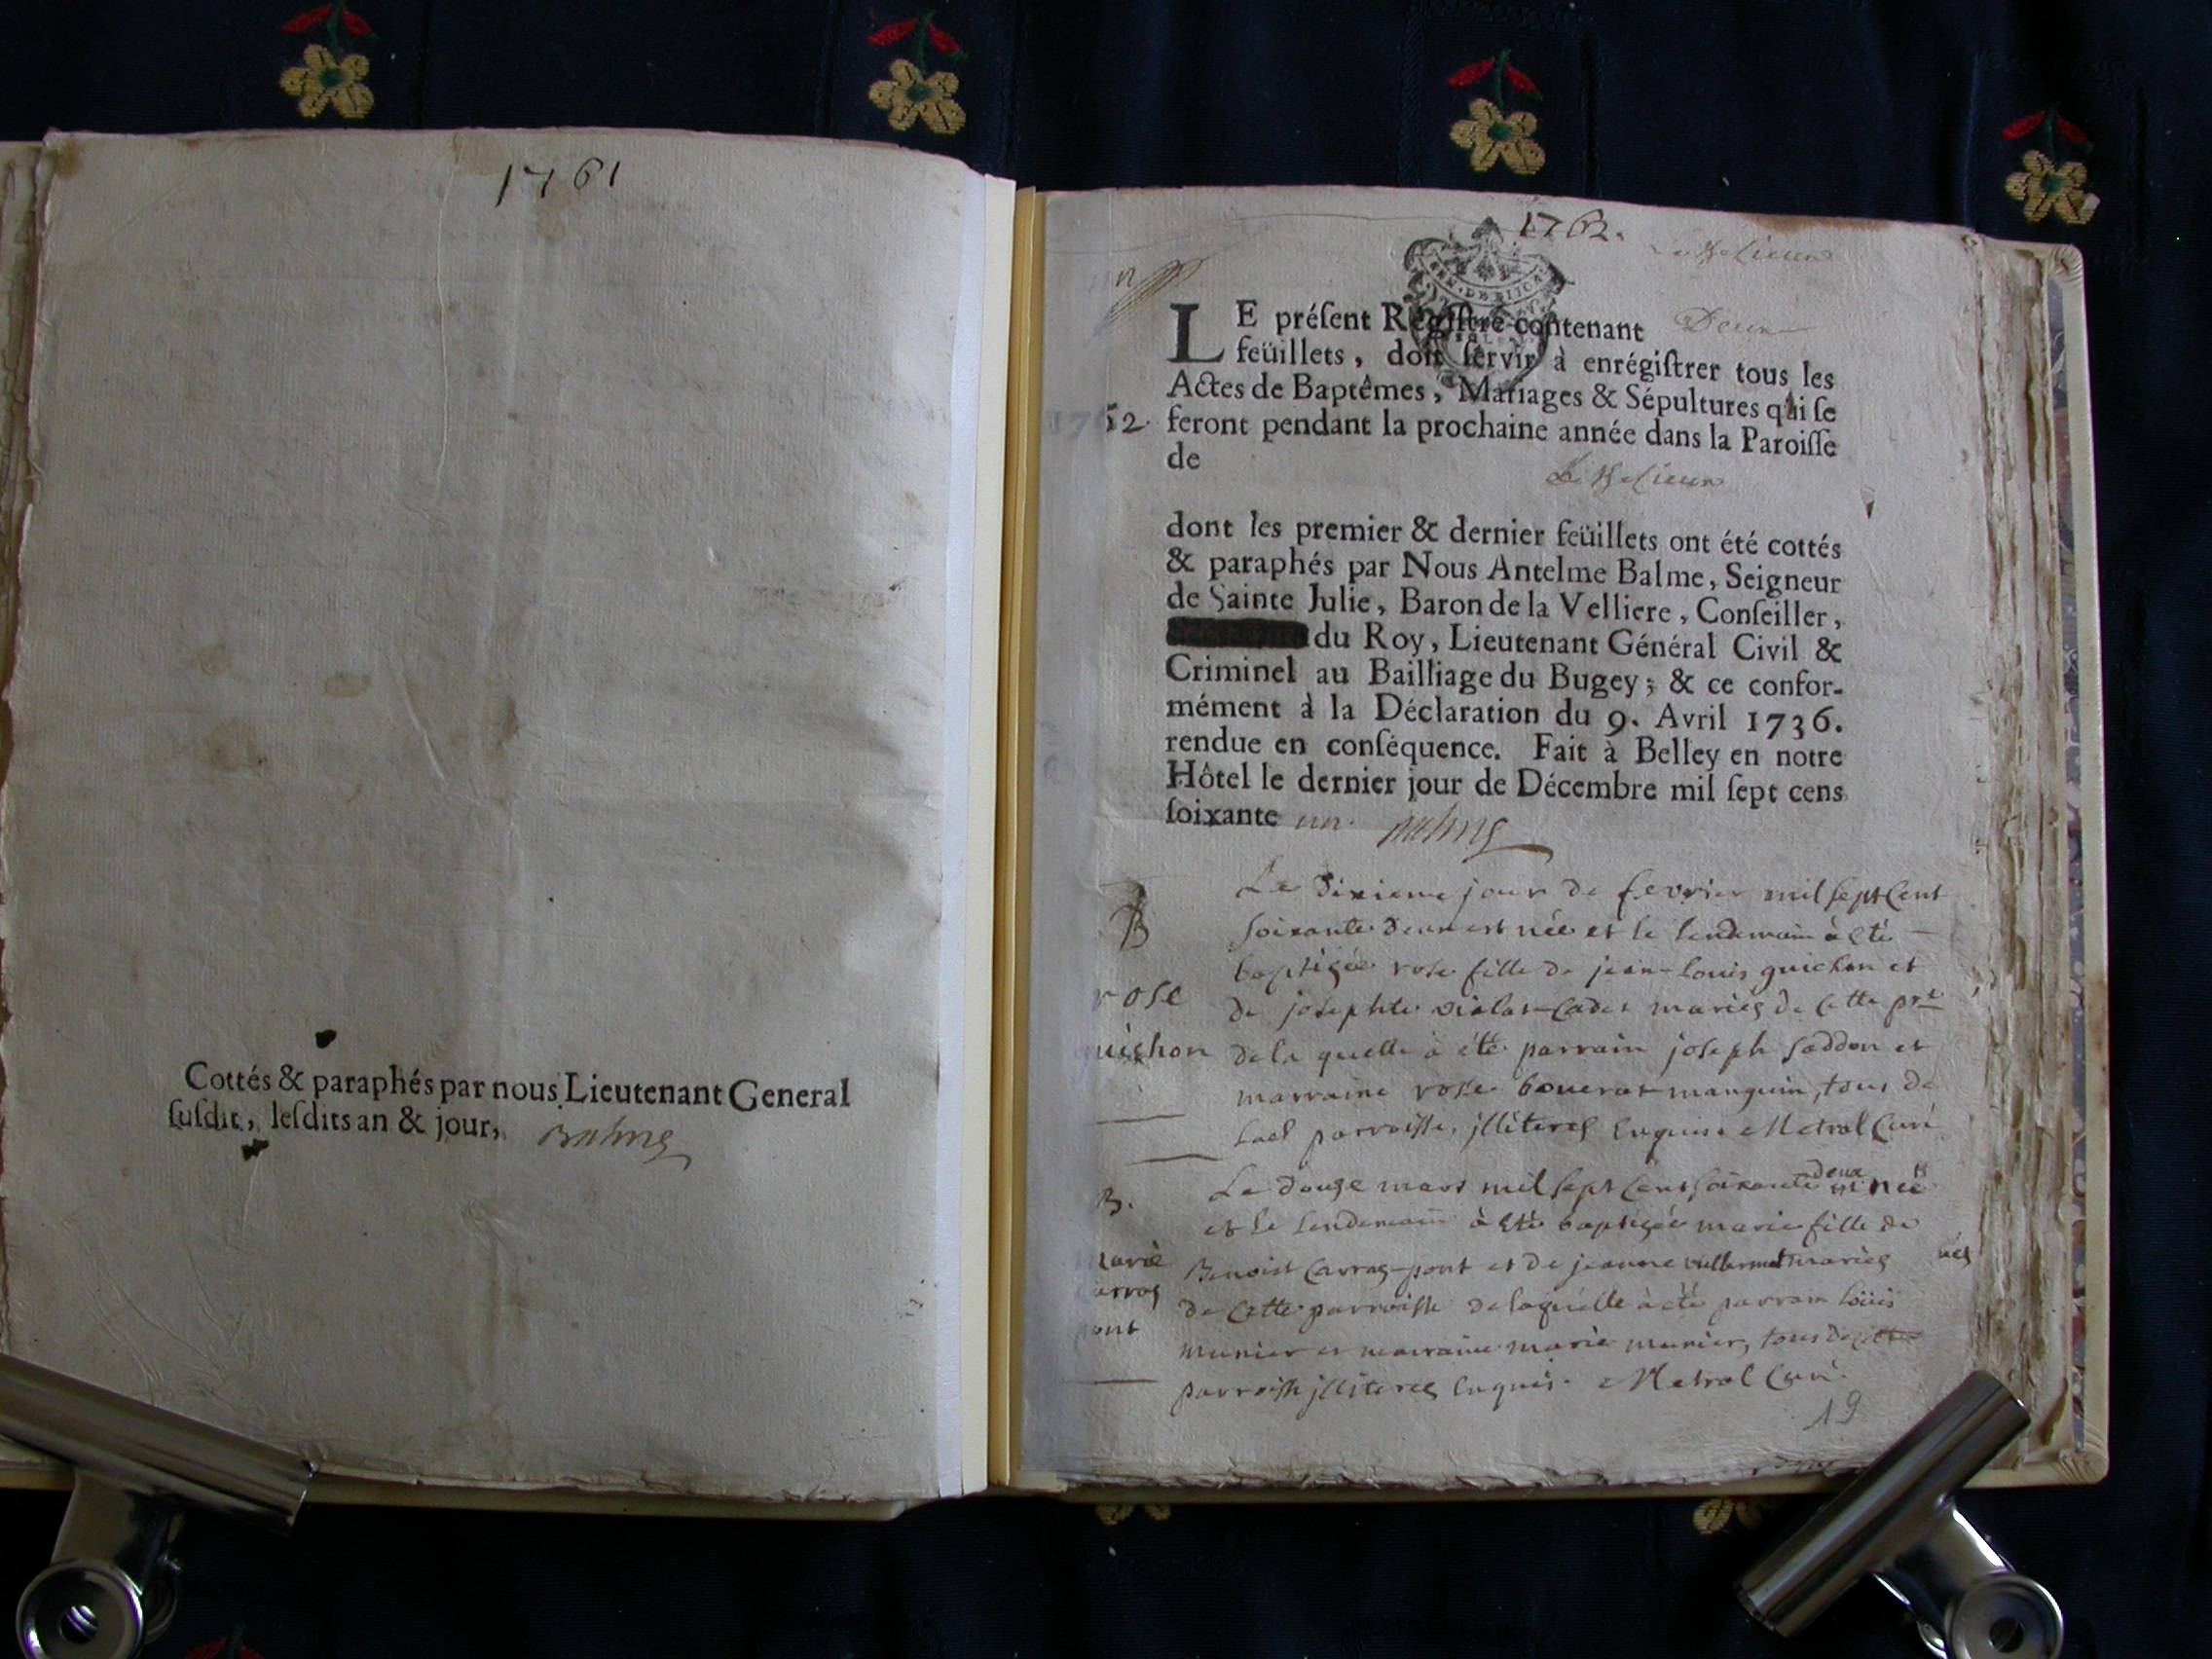 1761
Cottés & paraphés par nous Lieutenant General
ſuſdit, leſdits an & jour, Balme
1762.
LE préſent Regiſtre contenant Deux
feüillets, doit ſervir à enrégiſtrer tous les
Actes de Baptêmes, Mariages & Sépultures qui ſe
feront pendant la prochaine année dans la Paroiſſe
de
dont les premier & dernier feüillets ont été cottés
& paraphés par Nous Antelme Balme, Seigneur
de Sainte Julie, Baron de la Velliere, Conſeiller,
du Roy, Lieutenant Général Civil &
Criminel au Bailliage du Bugey; & ce confor-
mément à la Déclaration du 9. Avril 1736.
rendue en conſéquence. Fait à Belley en notre
Hôtel le dernier jour de Décembre mil ſept cens
ſoixante un. Balme
B
rose
uichon
Le dixieme jour de fevrier mil sept cent
soixante deux est née et le lendemain à été
baptisée rose fille de jean-louis guichon et
de josephte mariés de cette prse
de la quelle à été parrain joseph et
marraine rose bouvrat manguin, tous de
parroisse, illiterés enquis. Metral Curé
B.
marie
carras
pont
Le douze mars mil sept cent soixante deux née
et le lendemain à été baptisée marie fille de
Benoist Carras-pont et de jeanne mariés
de cette parroisse de laquelle à été parrain loüis
munier et marraine marie munier, tous de cette
parroisse illiterés enquis. Metral Curé.
19